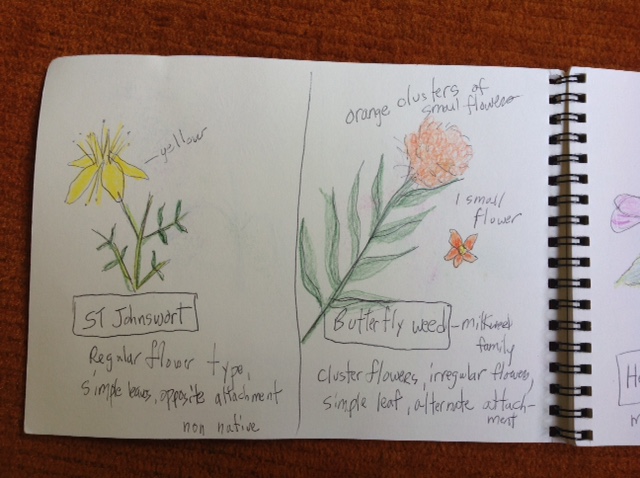 yellow
ST Johnswort
Regular flower type,
simple leaves, opposite attachment
non native
orange clusters of
small flowers
1 small
flower
Butterfly weed - milkweed
family
cluster flowers, irregular flowers,
simple leaf, alternate attach-
ment
H
m